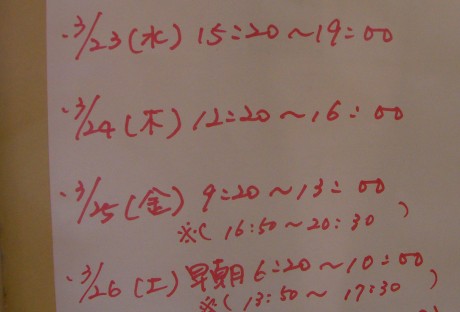 ・3/23(水) 15:20〜19:00
・3/24(木) 12:20〜16:00
・3/25(金) 9:20〜13:00
※( 16:50〜20:30 )
・3/26(土)早朝 6:20〜10:00
※( 13:50〜17:30 )